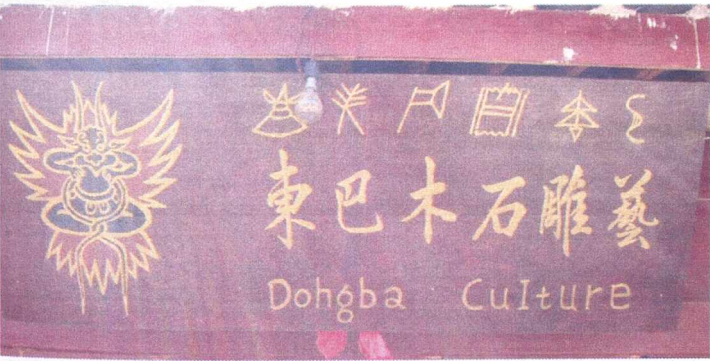 東巴木石雕藝
Dohgba Culture